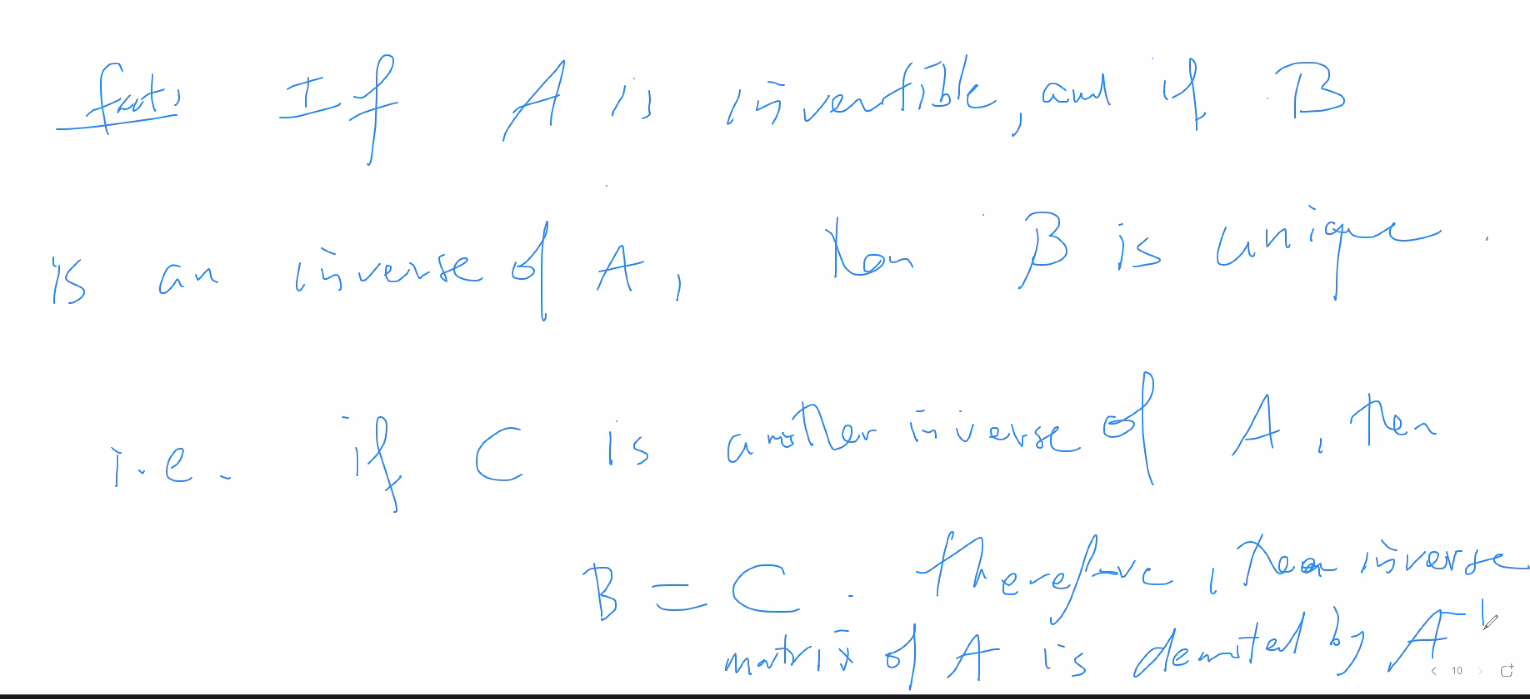 fact: If A is invertible, and if B
is an inverse of A, then B is unique.
i.e. if C is another inverse of A, then
B = C. therefore, the inverse
matrix of A is denoted by A⁻¹
10